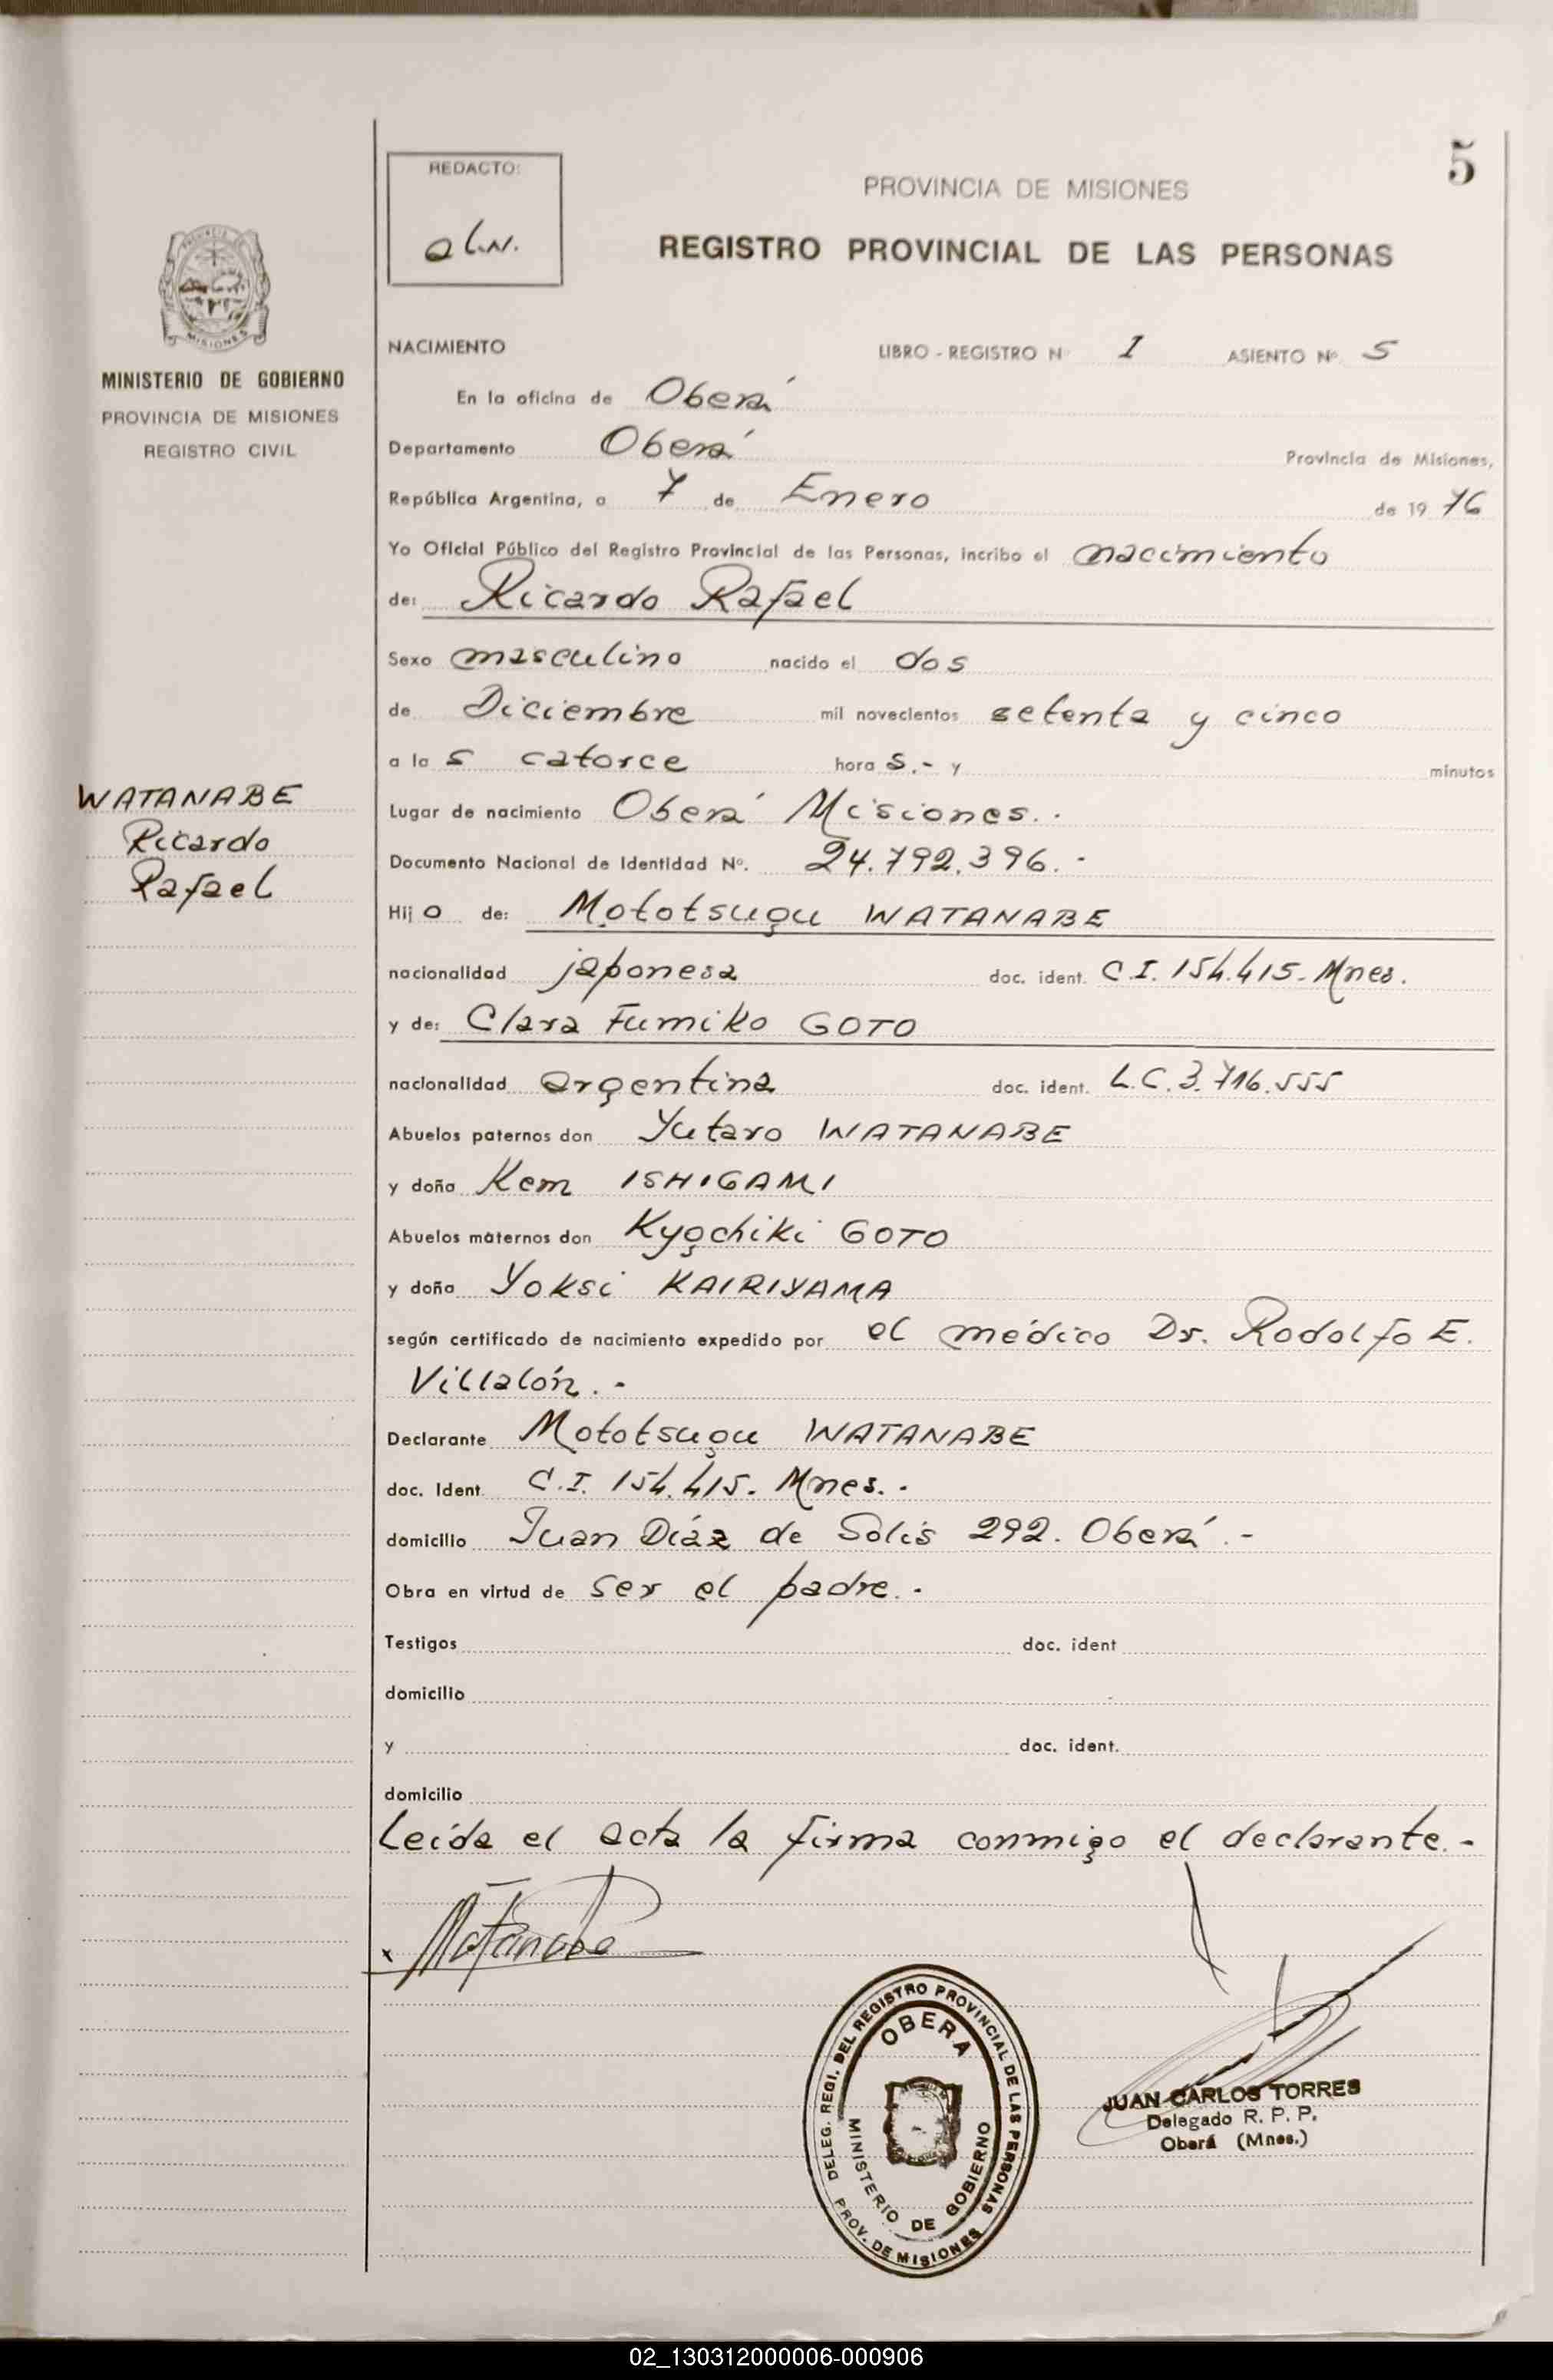 5
REDACTO:
a l.N.
PROVINCIA DE MISIONES
REGISTRO PROVINCIAL DE LAS PERSONAS
MISIONES
MINISTERIO DE GOBIERNO
PROVINCIA DE MISIONES
REGISTRO CIVIL
WATANABE
Ricardo
Rafael
NACIMIENTO LIBRO - REGISTRO N I ASIENTO Nº 5
En la oficina de Oberá
Departamento Oberá Provincia de Misiones,
República Argentina, a 7 de Enero de 19 76
Yo Oficial Público del Registro Provincial de las Personas, incribo el nacimiento
de: Ricardo Rafael
Sexo masculino nacido el dos
de Diciembre mil novecientos setenta y cinco
a la s catorce hora s.- y minutos
Lugar de nacimiento Oberá Misiones. .
Documento Nacional de Identidad Nº. 24.792.396. -
Hij o de: Mototsugu WATANABE
nacionalidad japonesa doc. ident. C.I. 154.415- Mnes.
y de: Clara Fumiko GOTO
nacionalidad argentina doc. ident. L.C. 3.716.555
Abuelos paternos don Yutaro WATANABE
y doña Kem ISHIGAMI
Abuelos maternos don Kyochiki GOTO
y doña Yoksi KAIRIYAMA
según certificado de nacimiento expedido por el médico Dr. Rodolfo E.
Villalón. -
Declarante Mototsugu WATANABE
doc. Ident C.I. 154.415. Mnes. .
domicilio Juan Díaz de Solís 292. Oberá. -
Obra en virtud de ser el padre. .
Testigos doc. ident
domicilio
y doc. ident.
domicilio
Leída el acta la firma conmigo el declarante. -
x Watanabe
DELEG. REGI. DEL REGISTRO PROVINCIAL DE LAS PERSONAS
PROV. DE MISIONES
OBERA
MINISTERIO DE GOBIERNO
JUAN CARLOS TORRES
Delegado R. P. P.
Oberá (Mnes.)
02_130312000006-000906